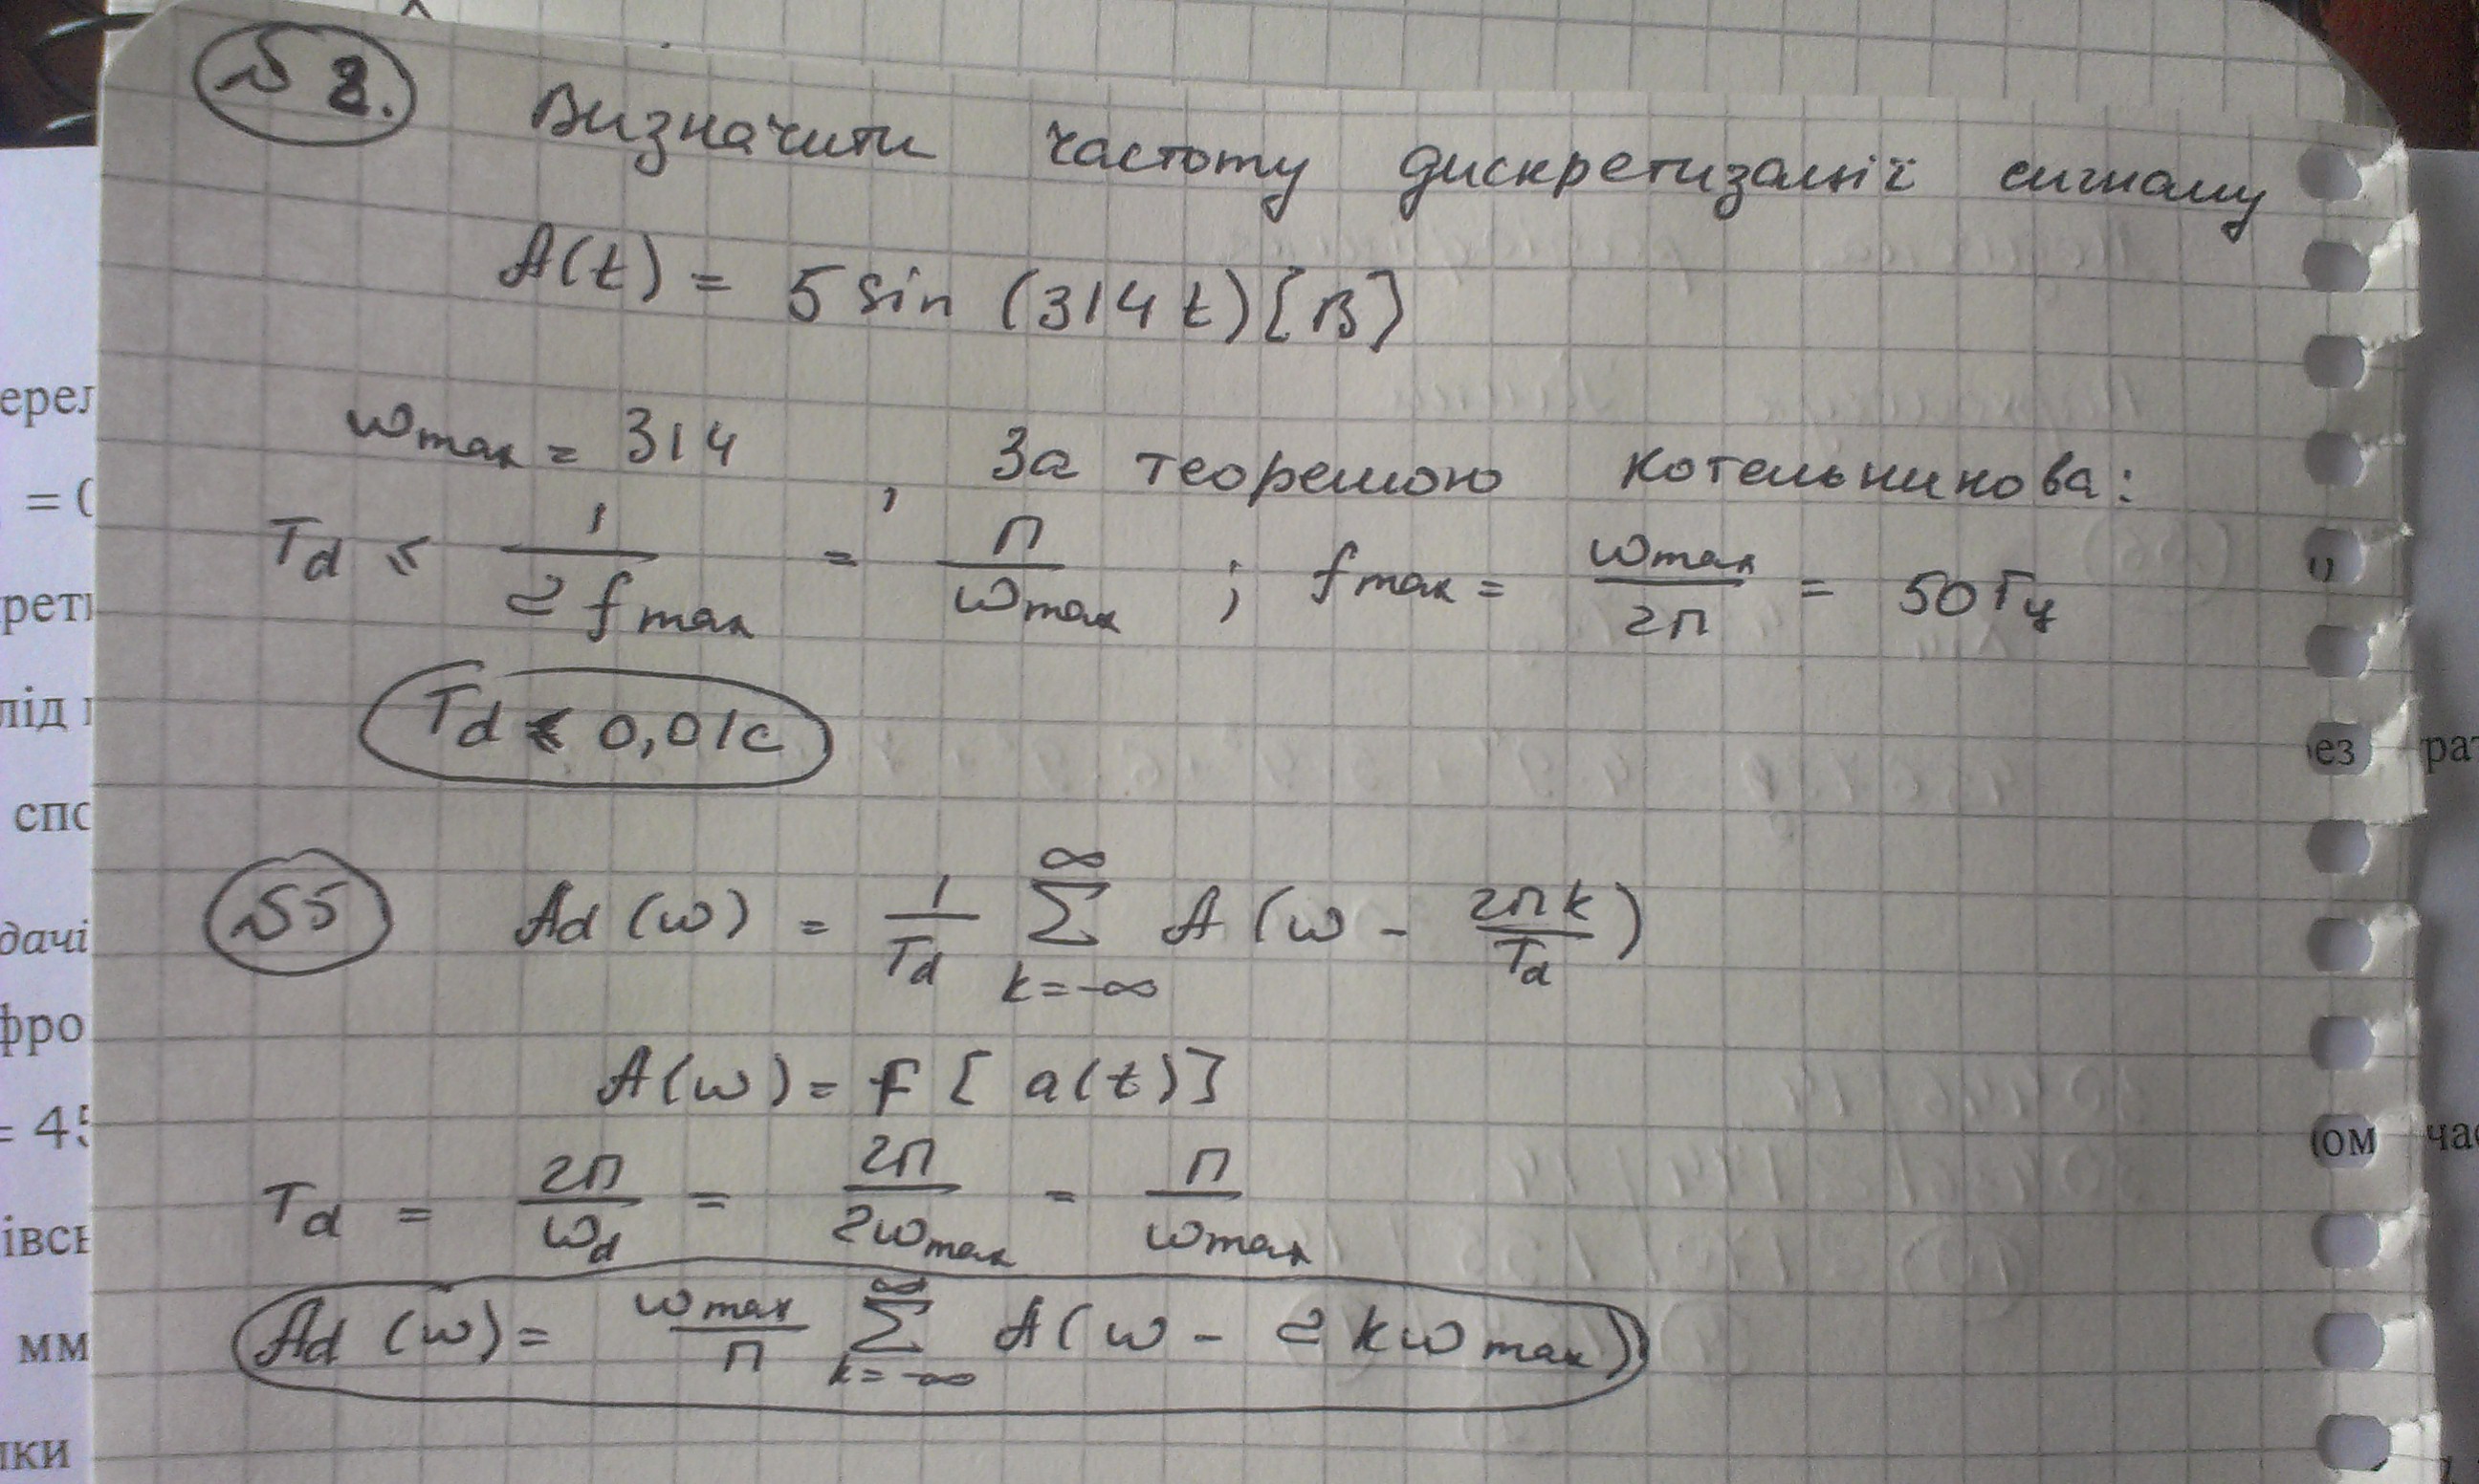 № 2. Визначити частоту дискретизації сигналу
A(t) = 5 sin (314 t) [В]
ωmax = 314 , За теоремою Котельникова:
Td ≤ 1 / 2 fmax = π / ωmax ; fmax = ωmax / 2π = 50 Гц
Td ≤ 0,01с
№5 Ad (ω) = 1/Td ∑ k=-∞ ∞ A (ω - 2πk/Td)
A(ω) = F [ a(t)]
Td = 2π/ωd = 2π/2ωmax = π/ωmax
Ad (ω) = ωmax/π ∑ k=-∞ ∞ A(ω - 2kωmax)
= 0
= 45
мм
ез
ом